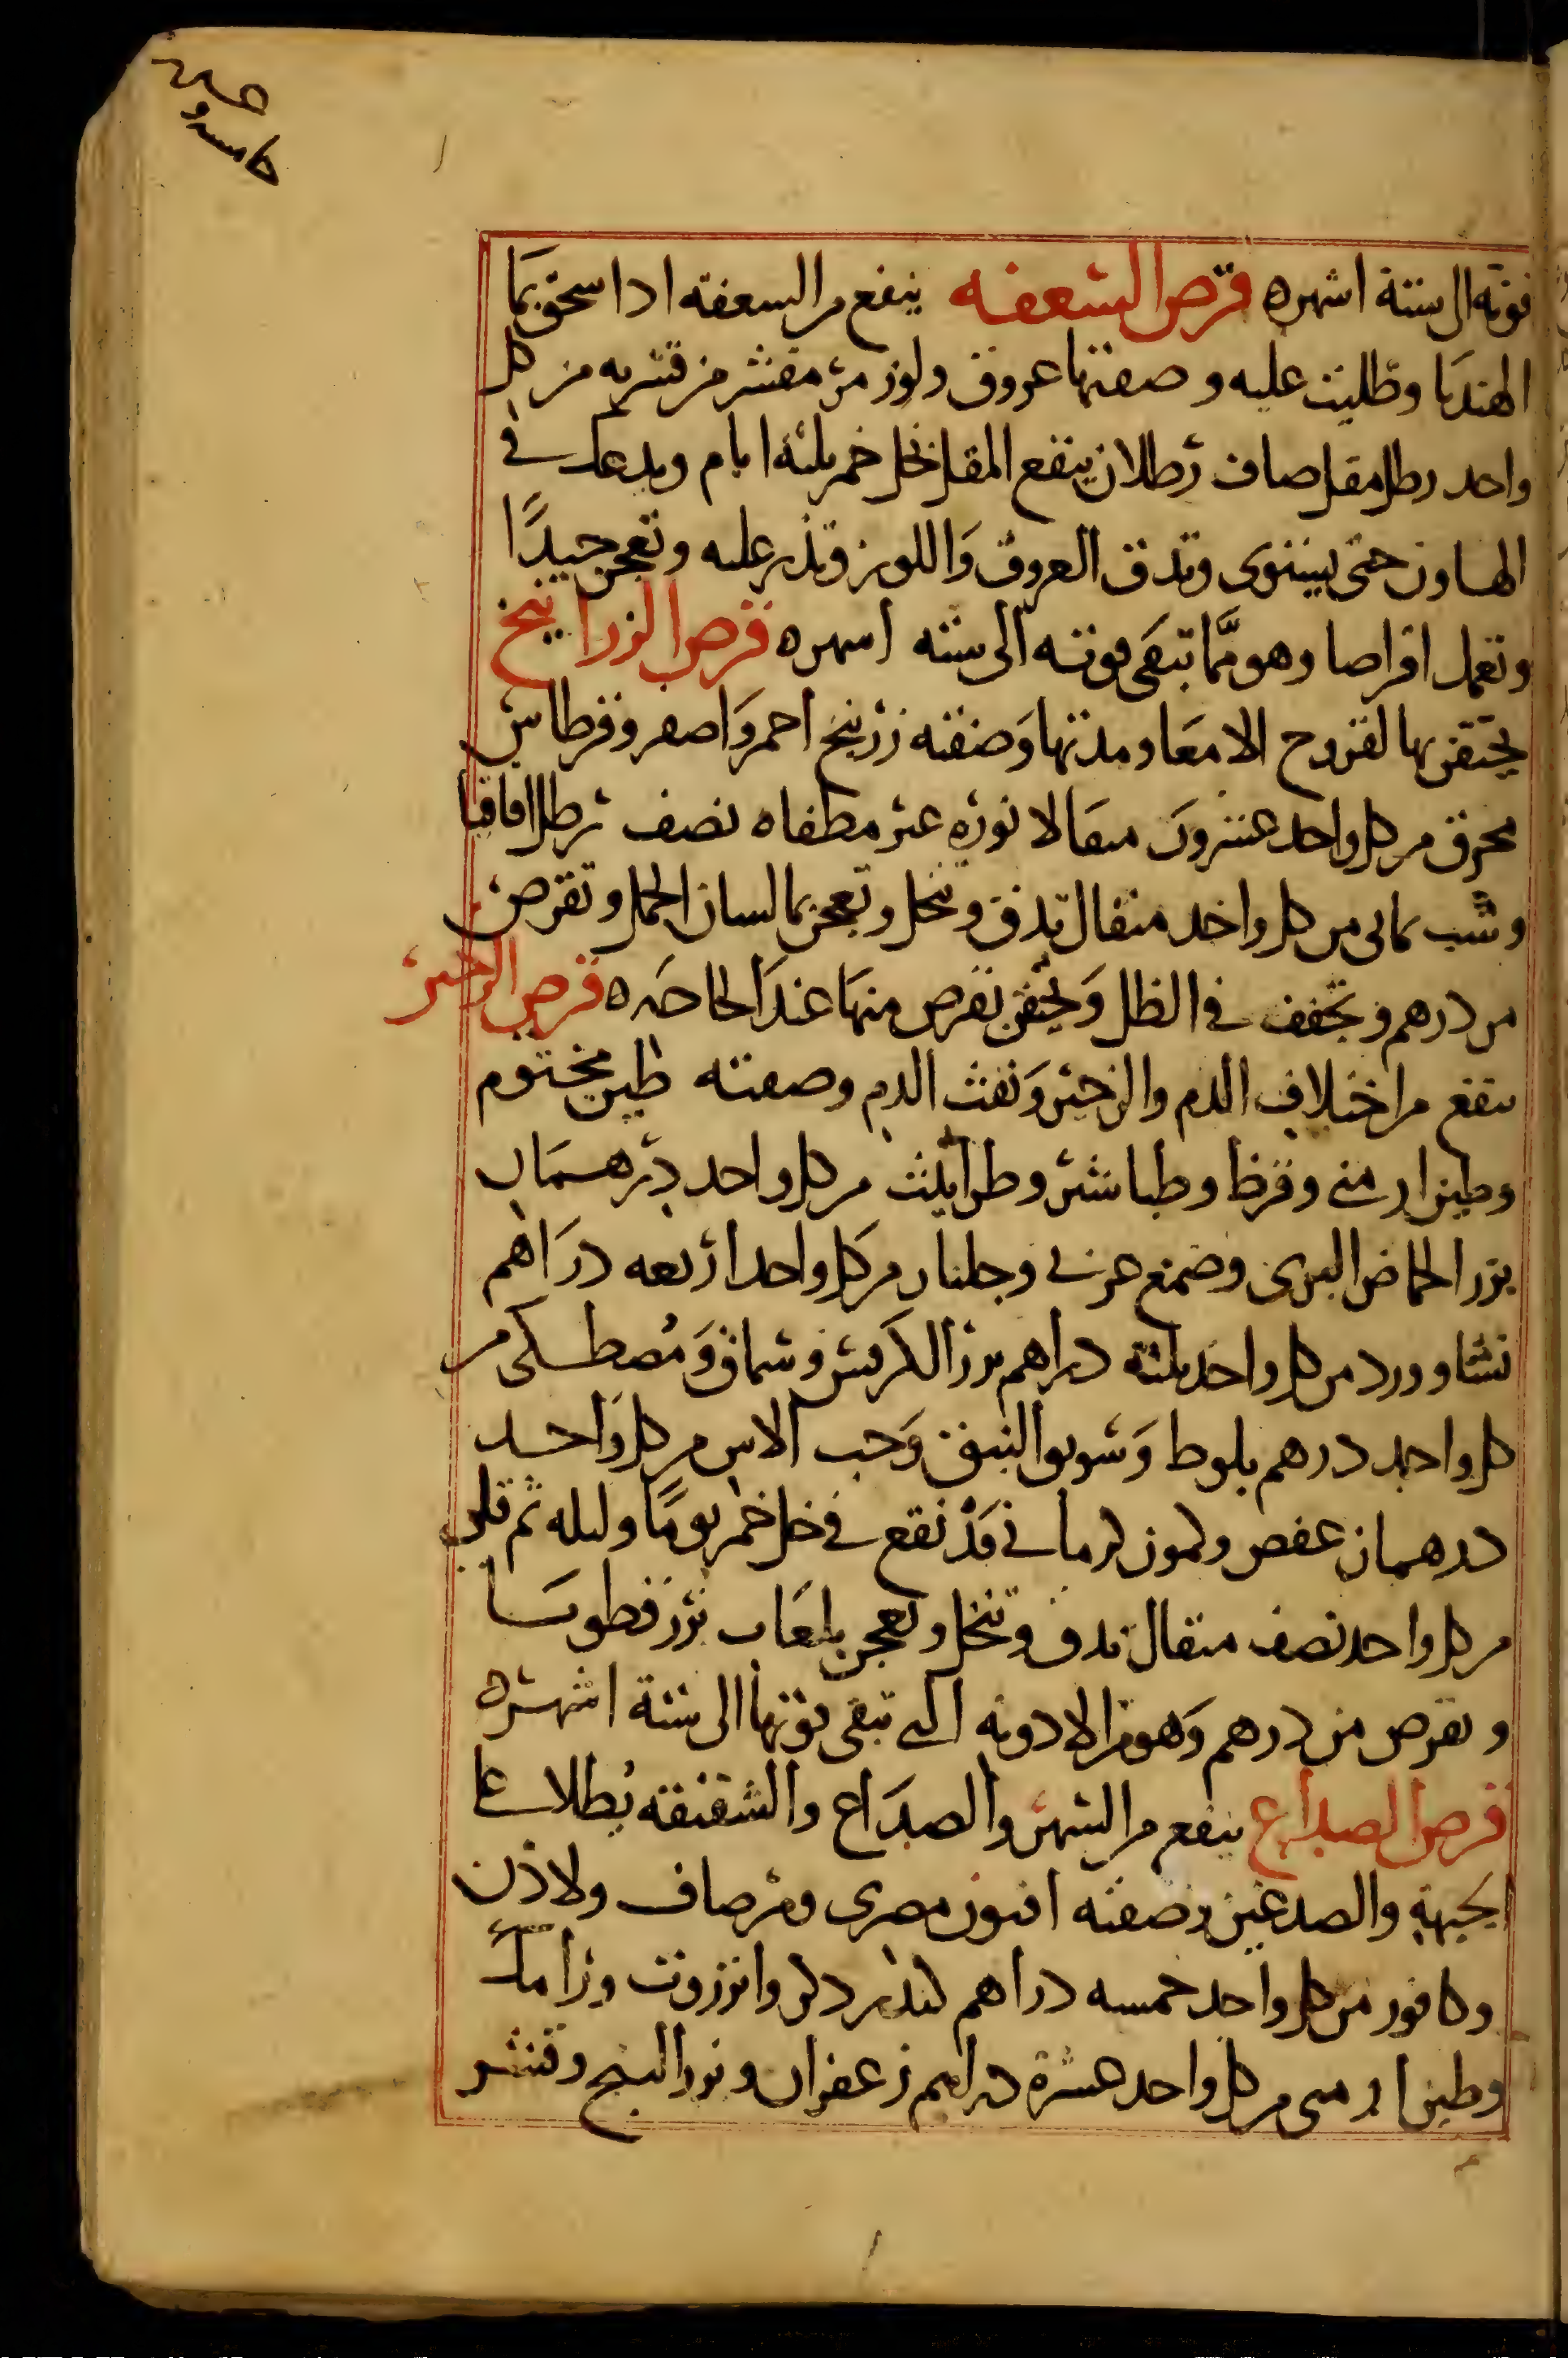 قوته الى ستة اشهر ه قرص السعفه ينفع من السعفه اذا سحق بما
الهندبا وطليت عليه وصفتها عروق ولوز مر مقشر من قشريه من كل
واحد رطل مقل صاف رطلان ينقع المقل بخل خمر ثلثة ايام ويدعك في
الهاون حتى يستوى وتدق العروق واللوز وتذر عليه وتعجن جيدًا
وتعمل اقراصا وهو مما تبقى قوته الى ستة اشهر ه قرص الزرانيخ
يحتقن بها لقروح الامعا ومدتها وصفته زرنيخ احمر واصفر وقرطاس
محرق من كل واحد عشرون مثقالا نوره غير مطفاه نصف رطل اقاقيا
وشب يمانى من كل واحد مثقال تدق وتنخل وتعجن بما لسان الحمل وتقرص
من درهم وتجفف في الظل وتحتقن بقرص منها عند الحاجه ه قرص الزحير
ينفع من اختلاف الدم والزحير ونفث الدم وصفته طين مختوم
وطين ارمني وقرظ وطباشير وطراثيث من كل واحد درهمان
بزر الحماض البرى وصمغ عربي وجلنار من كل واحد اربعه دراهم
نشا وورد من كل واحد ثلثه دراهم بزر الكرفس وسماق ومصطكى من
كل واحد درهم بلوط وسويق النبق وحب الاس من كل واحد
درهمان عفص وكمون كرماني قد نقع في خل خمر يومًا وليله ثم قلى
من كل واحد نصف مثقال تدق وتنخل وتعجن بلعاب بزر قطونا
وتقرص من درهم وهو من الادويه التي تبقى قوتها الى ستة اشهر ه
قرص الصداع ينفع من السهر والصداع والشقيقه يطلا على
الجبهة والصدغين وصفته افيون مصرى ومر صاف ولاذن
وكافور من كل واحد خمسه دراهم كندر ذكر وانزروت ورامك
وطين ارمنى من كل واحد عشرة دراهم زعفران وبزر البنج وقشر